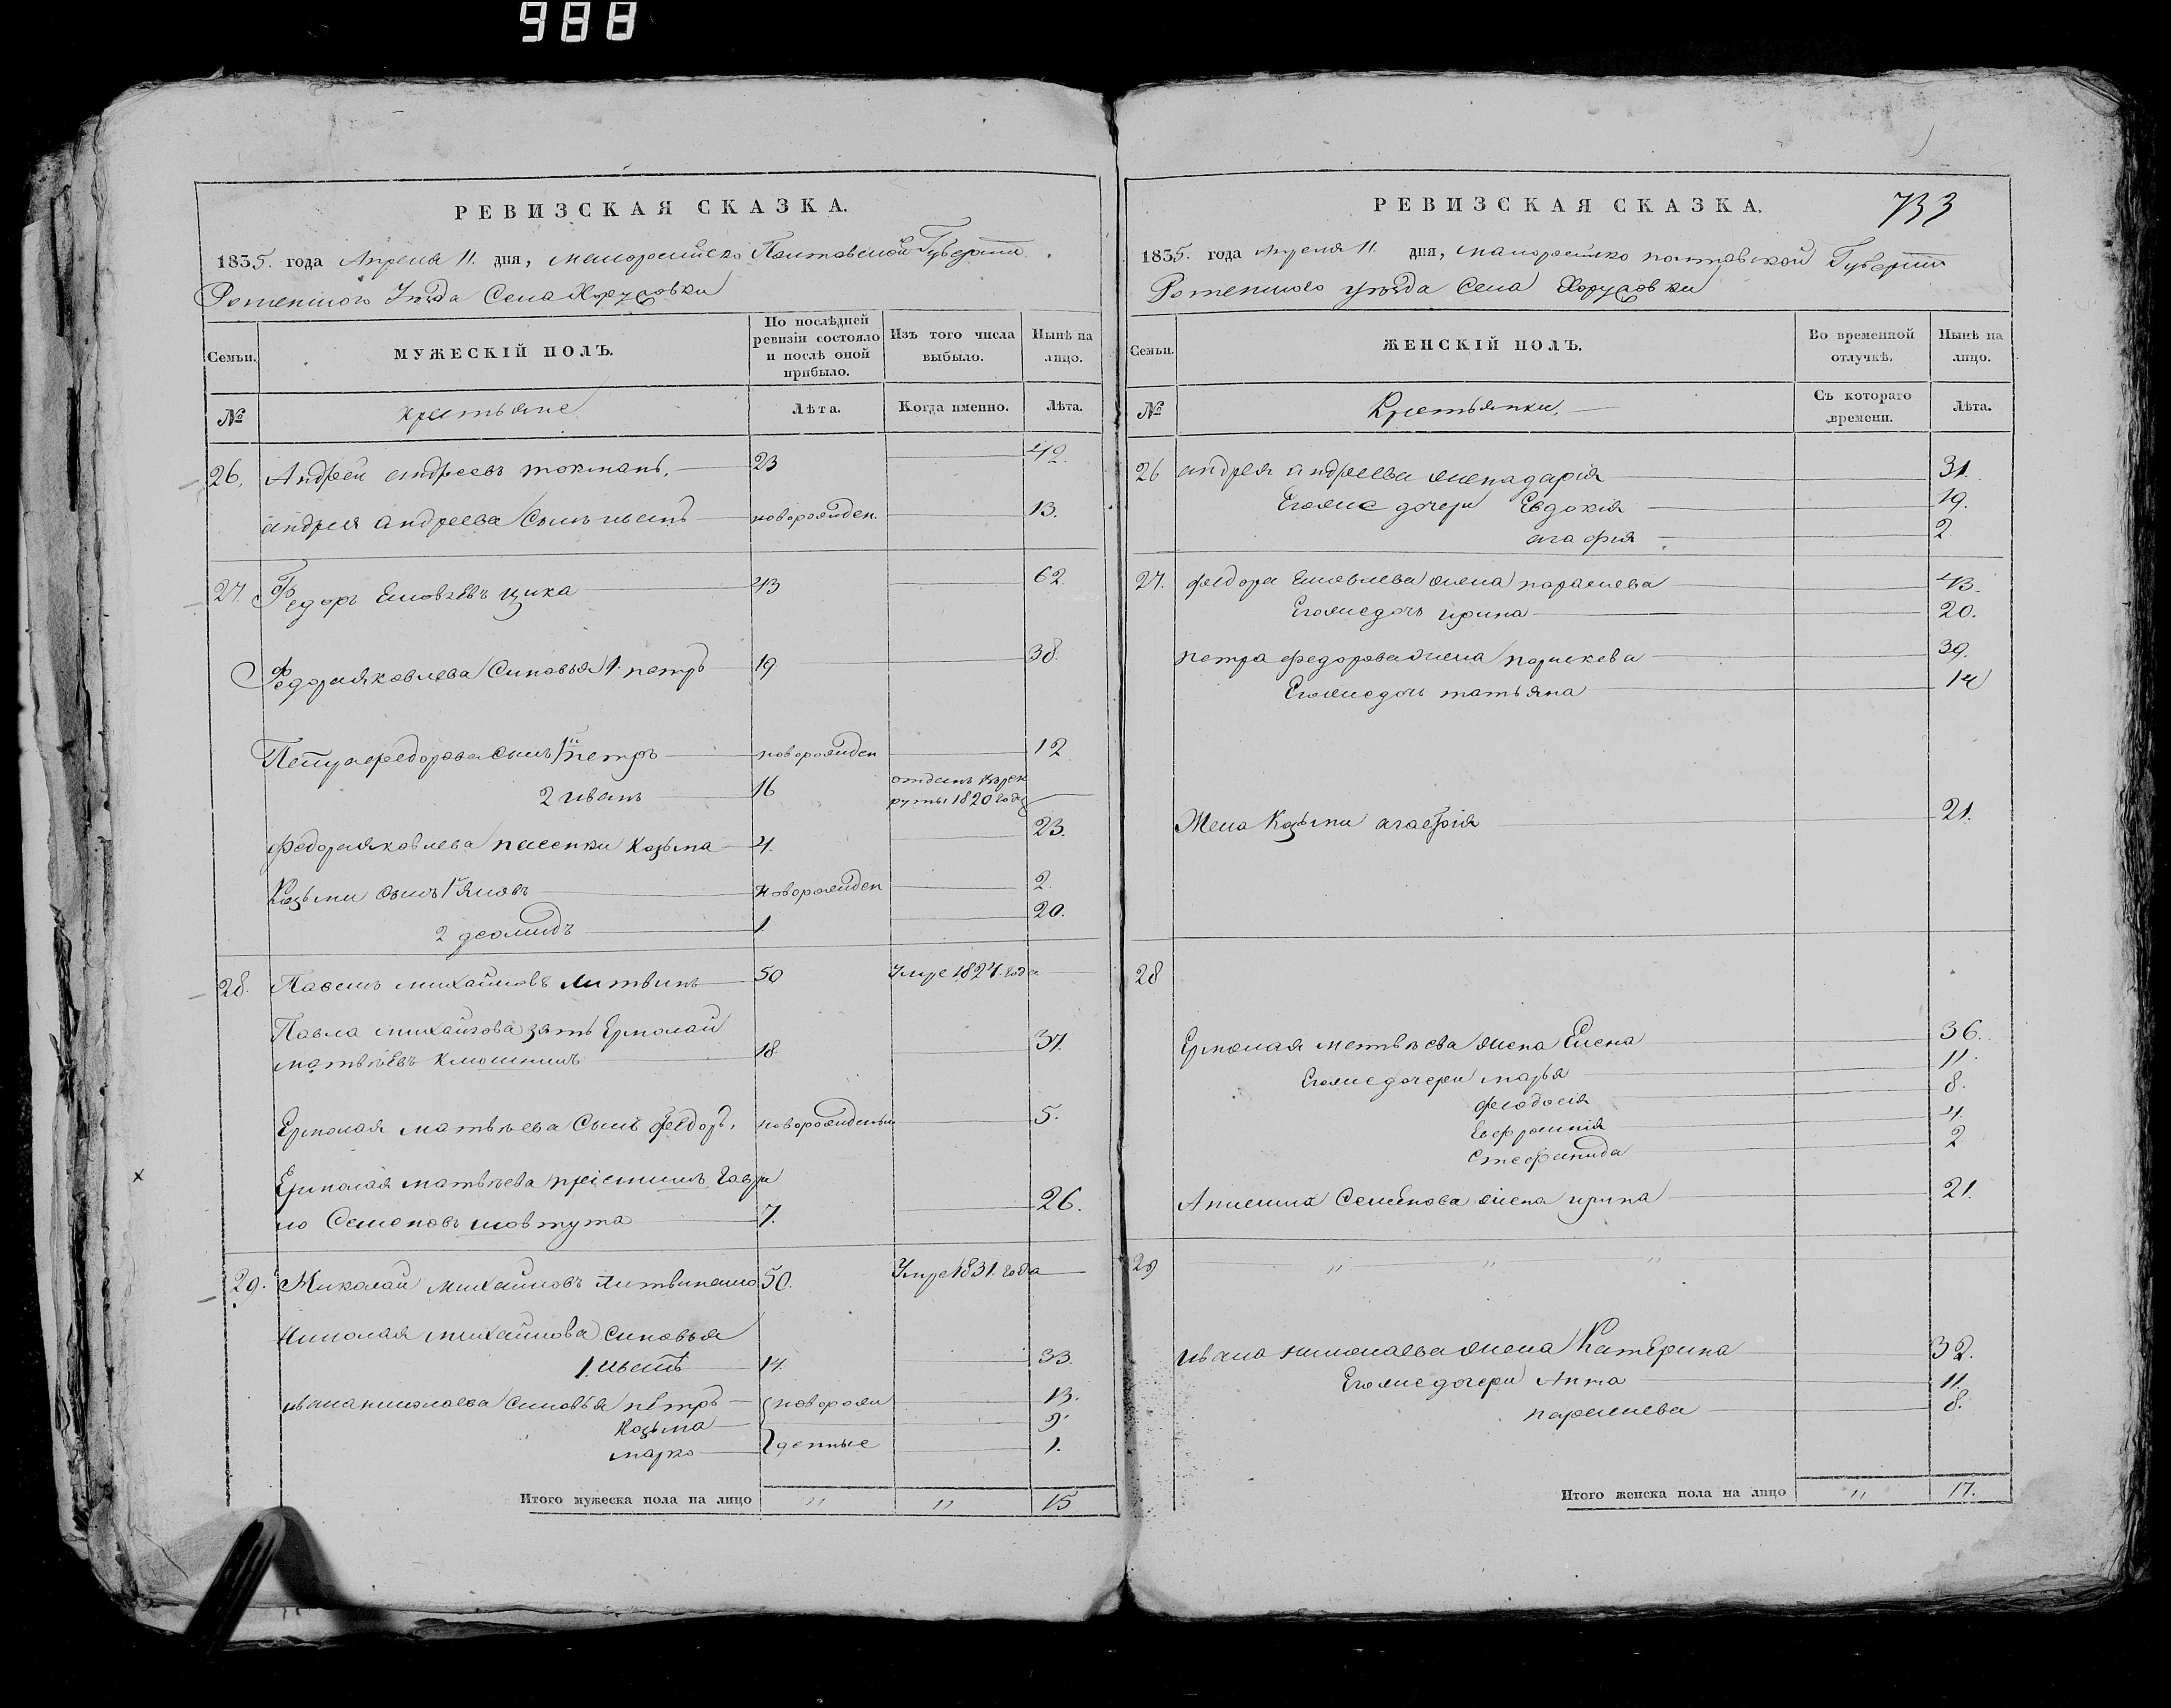 988
РЕВИЗСКАЯ СКАЗКА.
1835. года Апреля 11. дня, малоросійско Полтавской Губерніи
Роменского Уезда Села Хоружовки
Семьи. МУЖЕСКІЙ ПОЛЪ. По послѣдней ревизіи состояло и послѣ оной прибыло. Изъ того числа выбыло. Нынѣ на лицо.
№ крестьяне Лѣта. Когда именно. Лѣта.
26. Андрей андреевъ токмань. 23 42.
андрея андреева сынъ иванъ новорожден. 13.
27. Федоръ Яковлевъ цика 43 62.
Федора яковлева синовья 1. петръ 19 38.
Петра федорова сынъ 1й петръ новорожден 12
2 иванъ 16 отданъ въ рек
руты 1820 года
федора яковлева пасенки козьма 4. 23.
Козьми сынъ 1й яковъ новорожден 2.
2 деомидъ 1 20.
28. Павелъ михайловъ литвинъ 50 Умре 1827. года
Павла михайлова зять Ермолай
матвѣевъ 18. 37.
Ермолая матвѣева сынъ федоръ. новорожденны 5.
Ермолая матвѣева пріемишъ Гаври
ло Семеновъ шовтута 7. 26.
29. Николай михайловъ литвиненко 50. Умре 1831. года
Николая михайлова синовья
1. иванъ 14. 33.
ивана николаева синовья петръ новорож 13.
Козьма 9.
марко денные 1.
Итого мужеска пола на лицо " " 15
РЕВИЗСКАЯ СКАЗКА. 733
1835. года апреля 11. дня, малоросійско полтавской Губерніи
Роменского уезда села Хоружовки
Семьи. ЖЕНСКІЙ ПОЛЪ. Во временной отлучкѣ. Нынѣ на лицо.
№ Крестьянки. Съ котораго времени. Лѣта.
26 андрея андреева жена дарія 31.
Егоже дочери Евдокія 19.
агафія 2.
27. федора яковлева жена параскева 43.
Егоже дочь ирина 20.
петра федорова жена параскева 39.
Егоже дочь татьяна 14
Жена Козьми агафія 21.
28
Ермолая матвѣева жена Елена 36.
Егоже дочери марья 11.
феодосія 8.
Ефросинія 4.
Стефанида 2
Семенова жена ирина 21.
29 " " "
ивана николаева жена Катерина 32.
Егоже дочери Анна 11.
параскева 8.
Итого женска пола на лицо " 17.